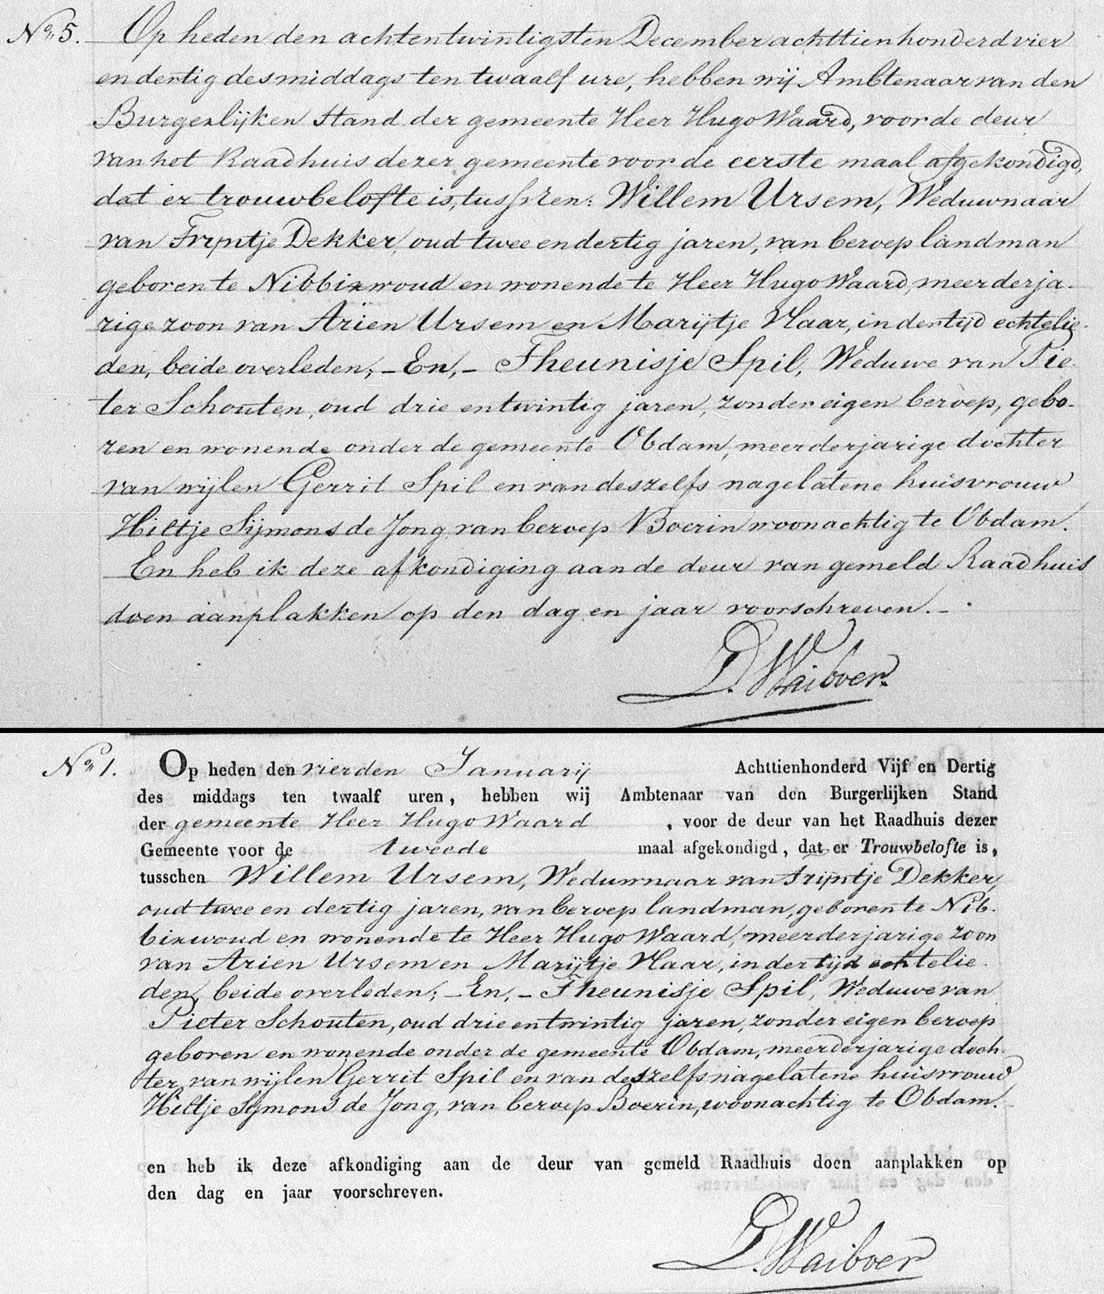 No. 5. Op heden den achtentwintigsten December achttienhonderd vier
en dertig des middags ten twaalf ure, hebben wij Ambtenaar van den
Burgerlijken Stand der gemeente Heer Hugo Waard, voor de deur
van het Raadhuis dezer gemeente voor de eerste maal afgekondigd,
dat er trouwbelofte is, tusschen: Willem Ursem, Weduwnaar
van Trijntje Dekker, oud twee en dertig jaren, van beroep landman
geboren te Nibbixwoud en wonende te Heer Hugo Waard, meerderja-
rige zoon van Arien Ursem en Marijtje Vlaar, in der tijd echtelie-
den, beide overleden; – En, – Theunisje Spil, Weduwe van Pie-
ter Schouten, oud drie entwintig jaren, zonder eigen beroep, gebo-
ren en wonende onder de gemeente Obdam, meerderjarige dochter
van wijlen Gerrit Spil en van deszelfs nagelatene huisvrouw
Hiltje Sijmons de Jong, van beroep Boerin woonachtig te Obdam.
En heb ik deze afkondiging aan de deur van gemeld Raadhuis
doen aanplakken op den dag en jaar voorschreven. –
D. Waiboer.
No. 1. Op heden den vierden Januarij Achttienhonderd Vijf en Dertig
des middags ten twaalf uren, hebben wij Ambtenaar van den Burgerlijken Stand
der gemeente Heer Hugo Waard , voor de deur van het Raadhuis dezer
Gemeente voor de tweede maal afgekondigd, dat er Trouwbelofte is,
tusschen Willem Ursem, Weduwnaar van Trijntje Dekker,
oud twee en dertig jaren, van beroep landman, geboren te Nib-
bixwoud en wonende te Heer Hugo Waard, meerderjarige zoon
van Arien Ursem en Marijtje Vlaar, in der tijd echtelie-
den, beide overleden; – En, – Theunisje Spil, Weduwe van
Pieter Schouten, oud drie entwintig jaren, zonder eigen beroep
geboren en wonende onder de gemeente Obdam, meerderjarige doch-
ter, van wijlen Gerrit Spil en van deszelfs nagelatene huisvrouw
Hiltje Sijmons de Jong, van beroep Boerin, woonachtig te Obdam.
en heb ik deze afkondiging aan de deur van gemeld Raadhuis doen aanplakken op
den dag en jaar voorschreven.
D. Waiboer